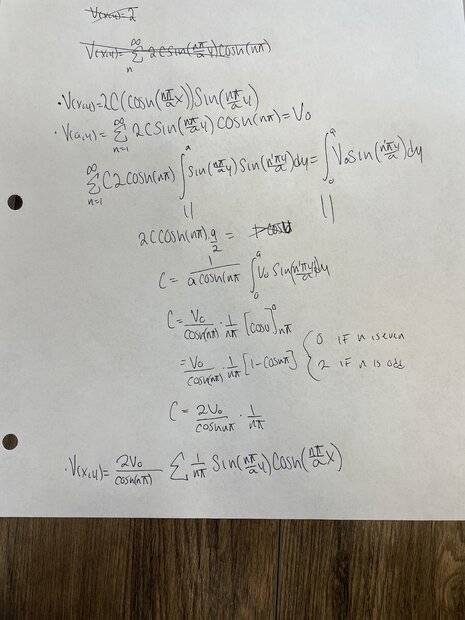 V(x,y)=2
V(x,y)= ∞∑n 2Csin(nπ/a y)cosh(nπ)
• V(x,y)=2C(cosh(nπ/a x))Sin(nπ/a y)
• V(a,y)= ∞∑n=1 2CSin(nπ/a y)COSh(nπ)=V₀
∞∑n=1 C2cosh(nπ) ∫0^a sin(nπ/a y)Sin(n'πy/a)dy = ∫0^a V₀Sin(n'πy/a)dy
|| ||
2CCOSh(nπ)·a/2 =
C= 1/acosh(nπ) ∫0^a V₀ Sin(n'πy/a)dy
C= V₀/cosh(nπ) · 1/nπ [cosu]^0_nπ
= V₀/cosh(nπ) · 1/nπ [1-Cosnπ] { 0 IF n is even
2 IF n is odd
C= 2V₀/coshnπ · 1/nπ
• V(x,y)= 2V₀/cosh(nπ) ∑ 1/nπ Sin(nπ/a y)Cosh(nπ/a x)